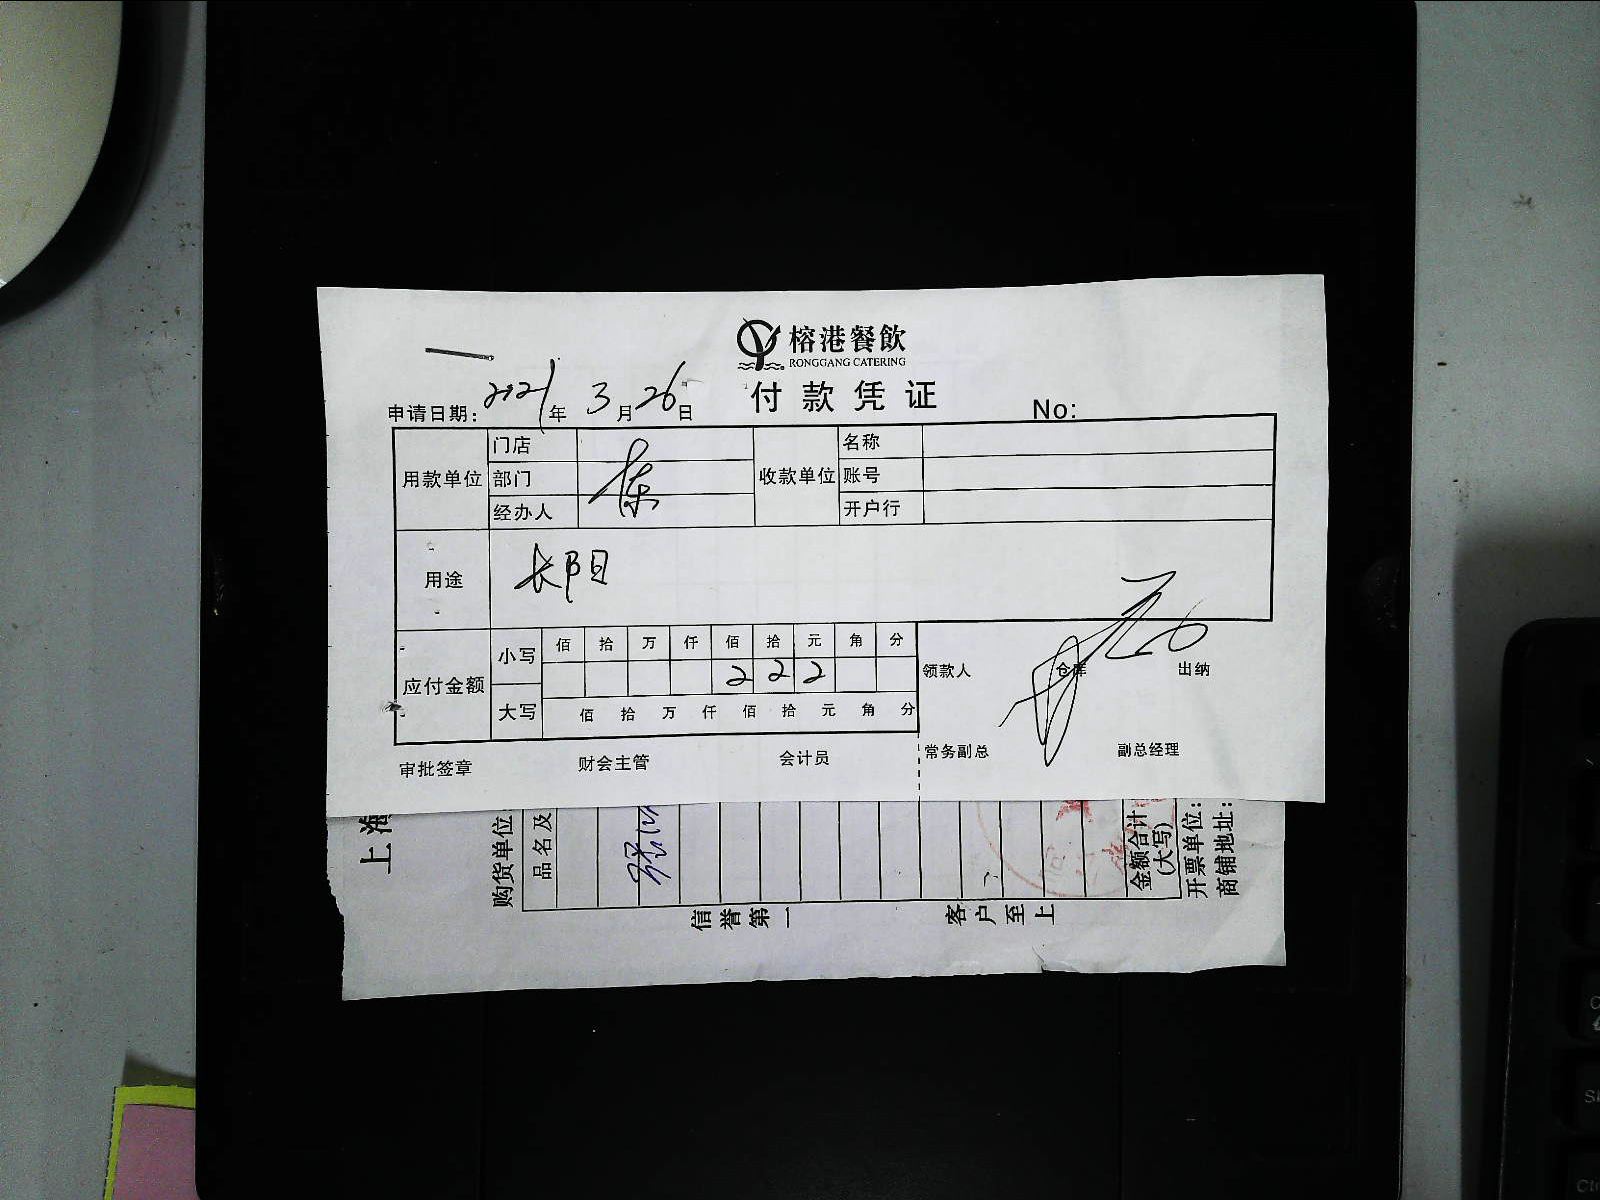 榕港餐飲
RONGGANG CATERING
付款凭证
申请日期: 2021年 3月26日
No:
用款单位 门店 收款单位 名称
部门 账号
经办人 开户行
用途 长阳
应付金额 小写 佰 拾 万 仟 佰 拾 元 角 分
2 2 2
大写 佰 拾 万 仟 佰 拾 元 角 分
领款人 仓库 出纳
审批签章 财会主管 会计员 常务副总 副总经理
上海
购货单位
品名及
金额合计
(大写)
开票单位:
商铺地址:
信誉第一 客户至上